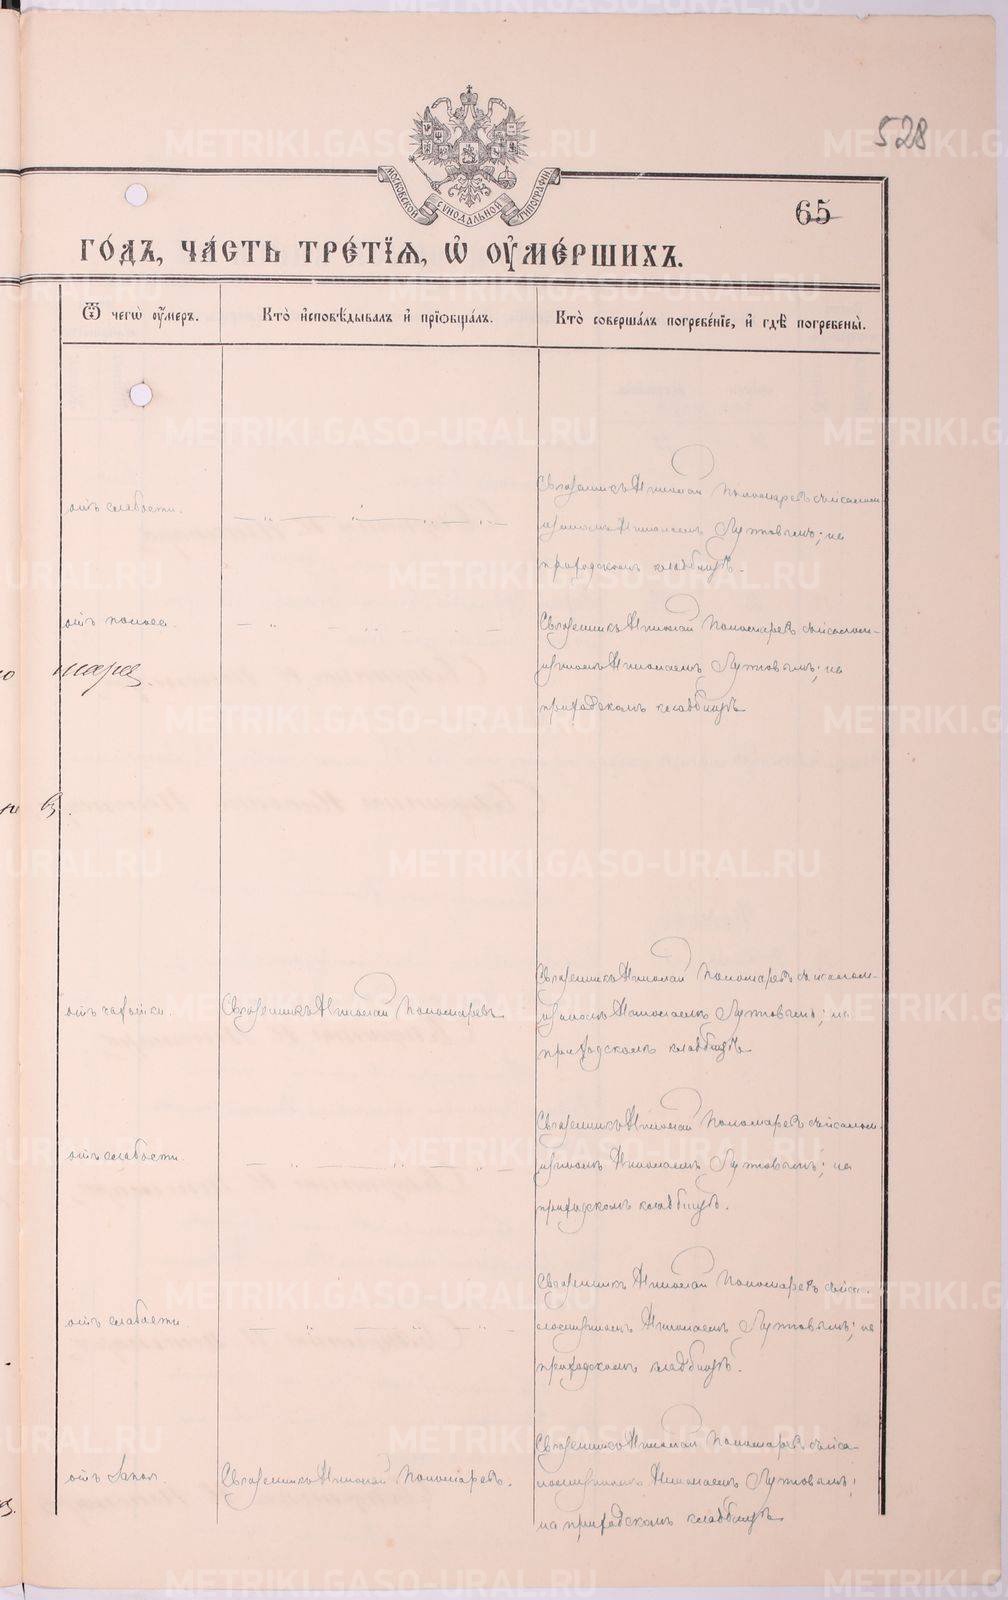 528
МОСКОВСКОЙ СѴНОДАЛЬНОЙ ТИПОГРАФІИ
65
ГО́ДЪ, ЧА́СТЬ ТРЕ́ТІѦ, Ѡ҆ ОУ҆МЕ́РШИХЪ.
Ѿ чегѡ̀ оу҆́меръ.
Кто̀ и҆сповѣ́дывалъ и҆ прїѡбща́лъ.
Кто̀ соверша́лъ погребе́нїе, и҆ гдѣ̀ погребены̀.
отъ слабости.
Священникъ Николай Пономаревъ съ псалом-
щикомъ Николаемъ; на
приходскомъ кладбищѣ.
отъ поноса.
Священникъ Николай Пономаревъ съ псалом-
щикомъ Николаемъ; на
приходскомъ кладбищѣ
марта
отъ чахотки.
Священникъ Николай Пономаревъ
Священникъ Николай Пономаревъ съ псалом-
щикомъ Николаемъ; на
приходскомъ кладбищѣ
отъ слабости.
Священникъ Николай Пономаревъ съ псалом-
щикомъ Николаемъ; на
приходскомъ кладбищѣ.
отъ слабости.
Священникъ Николай Пономаревъ съ пса-
ломщикомъ Николаемъ; на
приходскомъ кладбищѣ.
отъ
Священникъ Николай Пономаревъ.
Священникъ Николай Пономаревъ съ пса-
ломщикомъ Николаемъ;
на приходскомъ кладбищѣ
METRIKI.GASO-URAL.RU